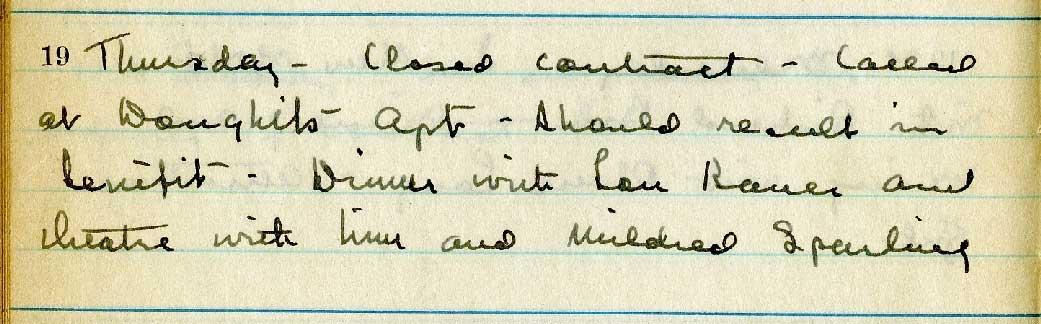 19 Thursday - Closed contract - Called
at Apt - Should result in
benefit - Dinner with Lou and
theatre with him and Mildred Sparling